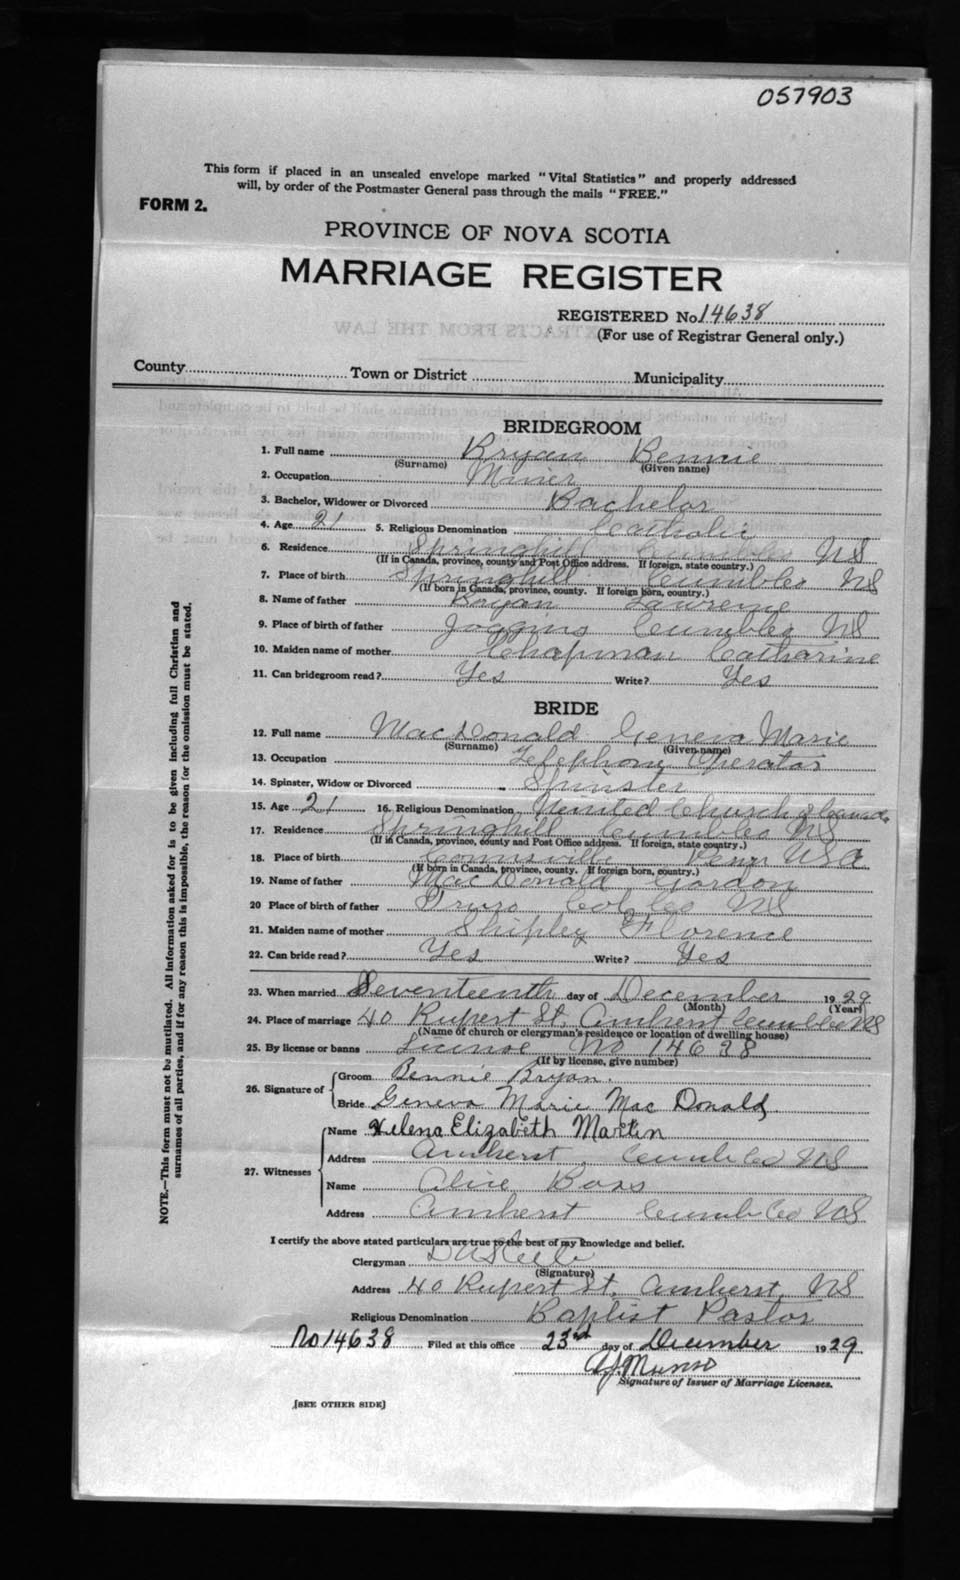 057903
This form if placed in an unsealed envelope marked "Vital Statistics" and properly addressed
will, by order of the Postmaster General pass through the mails "FREE."
FORM 2.
PROVINCE OF NOVA SCOTIA
MARRIAGE REGISTER
REGISTERED No. 14638
(For use of Registrar General only.)
County Town or District Municipality
BRIDEGROOM
1. Full name Bryan Bennie
(Surname) (Given name)
2. Occupation Miner
3. Bachelor, Widower or Divorced Bachelor
4. Age 21 5. Religious Denomination Catholic
6. Residence Springhill Cumb Co NS
(If in Canada, province, county and Post Office address. If foreign, state country.)
7. Place of birth Springhill Cumb Co NS
(If born in Canada, province, county. If foreign born, country.)
8. Name of father Bryan Lawrence
9. Place of birth of father Joggins Cumb Co NS
10. Maiden name of mother Chapman Catharine
11. Can bridegroom read? Yes Write? Yes
BRIDE
12. Full name MacDonald Geneva Marie
(Surname) (Given name)
13. Occupation Telephone Operator
14. Spinster, Widow or Divorced Spinster
15. Age 21 16. Religious Denomination United Church of Canada
17. Residence Springhill Cumb Co NS
(If in Canada, province, county and Post Office address. If foreign, state country.)
18. Place of birth USA
(If born in Canada, province, county. If foreign born, country.)
19. Name of father MacDonald Gordon
20 Place of birth of father Truro Col Co NS
21. Maiden name of mother Shipley Florence
22. Can bride read? Yes Write? Yes
23. When married Seventeenth day of December 1929
(Month) (Year)
24. Place of marriage 40 Rupert St. Amherst Cumb Co NS
(Name of church or clergyman's residence or location of dwelling house)
25. By license or banns License No 14638
(If by license, give number)
26. Signature of
Groom Bennie Bryan.
Bride Geneva Marie Mac Donald
27. Witnesses
Name Helena Elizabeth Martin
Address Amherst Cumb Co NS
Name Alice Boss
Address Amherst Cumb Co NS
I certify the above stated particulars are true to the best of my knowledge and belief.
Clergyman
(Signature)
Address 40 Rupert St. Amherst, NS
Religious Denomination Baptist Pastor
No 14638 Filed at this office 23rd day of December 1929
Munro
Signature of Issuer of Marriage Licenses.
[SEE OTHER SIDE]
NOTE.—This form must not be mutilated. All information asked for is to be given including full Christian and
surnames of all parties, and if for any reason this is impossible, the reason for the omission must be stated.